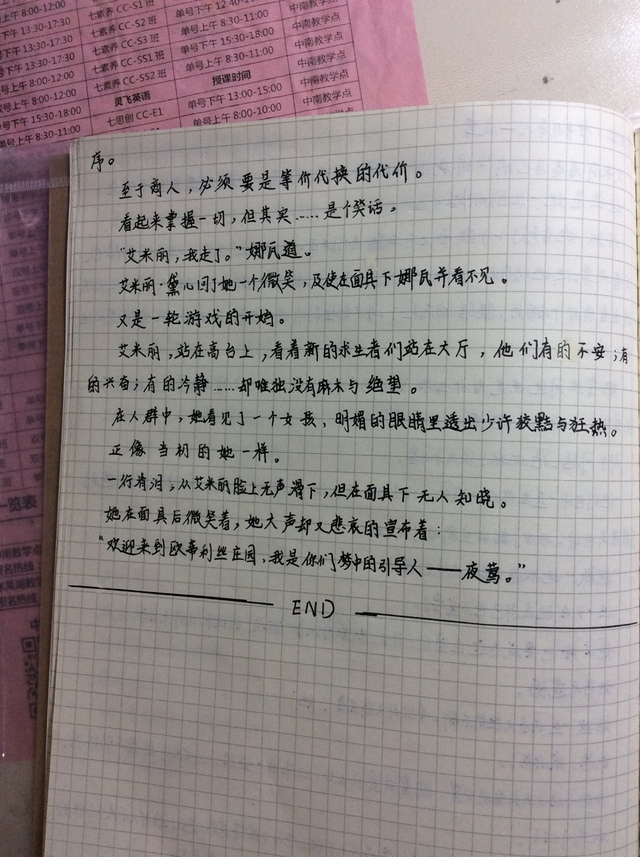 8:00-12:00
单号上午 8:00-12:00 七素养 CC-S1 班 单号下午 12:40-
午 13:30-17:30 七素养 CC-S2 班 单号上午 8:30-11:
下午 13:30-17:30 七素养 CC-S3 班 单号上午 8:30-11:00 中南教学点
上午 8:00-12:00 七素养 CC-SS1 班 单号下午 15:30-18:00 中南教学点
号上午 8:00-12:00 七素养 CC-SS2 班 单号上午 8:30-11:00 中南教学点
灵飞英语 授课时间
下午 15:30-18:00 七思创 CC-E1 单号下午 13:00-15:00 中南教学点
单号上午 8:30-11:00 单号上午 8:00-10:00 中南教学点
序。
至于商人，必须要是等价代换的代价。
看起来掌握一切，但其实……是个笑话。
“艾米丽，我走了。”娜瓦道。
艾米丽·黛儿回了她一个微笑，及使在面具下娜瓦并看不见。
又是一轮游戏的开始。
艾米丽，站在高台上，看着新的求生者们站在大厅，他们有的不安；有
的兴奋；有的冷静……却唯独没有麻木与绝望。
在人群中，她看见了一个女孩，明媚的眼睛里透出少许狡黠与狂热。
正像当初的她一样。
一行清泪，从艾米丽脸上无声滑下，但在面具下无人知晓。
她在面具后微笑着，她大声却又悲哀的宣布着：
“欢迎来到欧蒂利丝庄园，我是你们梦中的引导人——夜莺。”
END